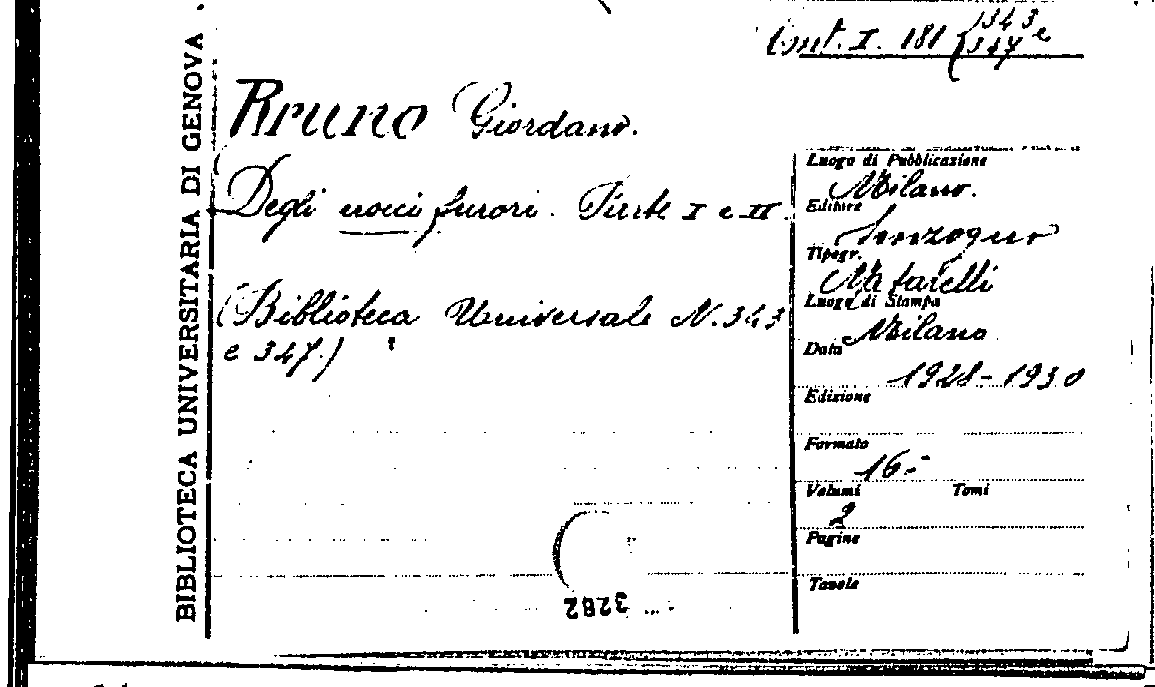 Cont. I. 181 { 343 e
347
BIBLIOTECA UNIVERSITARIA DI GENOVA
Bruno Giordano.
Degli eroici furori. Parte I e II.
(Biblioteca Universale N. 343
e 347.)
Luogo di Pubblicazione
Milano.
Editore
Sonzogno
Tipogr.
Matarelli
Luogo di Stampa
Milano
Data
1928-1930
Edizione
Formato
16.-
Volumi Tomi
2
Pagine
Tavole
3282